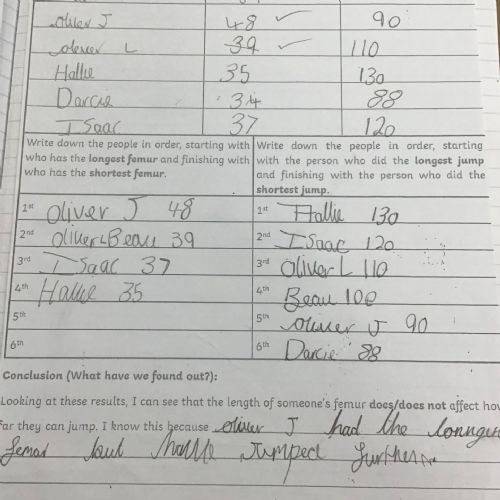 Oliver J 48 90
Oliver L 39 110
Hallie 35 130
Darcie 34 88
Isaac 37 120
Write down the people in order, starting with who has the longest femur and finishing with who has the shortest femur.
Write down the people in order, starting with the person who did the longest jump and finishing with the person who did the shortest jump.
1st Oliver J 48
1st Hallie 130
2nd Oliver L Beau 39
2nd Isaac 120
3rd Isaac 37
3rd Oliver L 110
4th Hallie 35
4th Beau 100
5th
5th Oliver J 90
6th
6th Darcie 88
Conclusion (What have we found out?):
Looking at these results, I can see that the length of someone's femur does/does not affect how
far they can jump. I know this because Oliver J had the
femar but Hallie Jumped